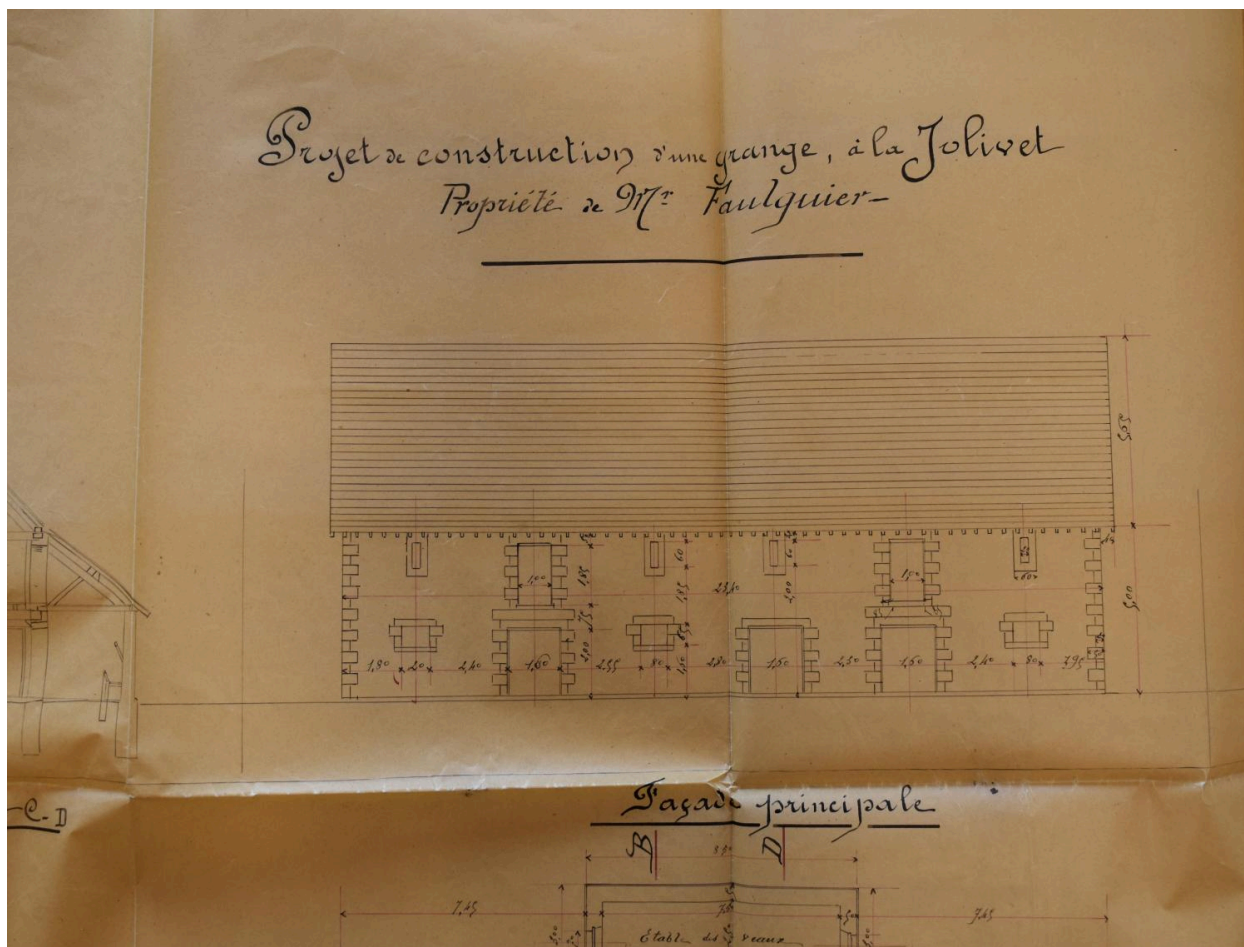 Projet de construction d'une grange, à la Jolivet
Propriété de Mr Faulquier-
5,05
60
60
1,00
1,85
1,85
2,00
23,40
1,00
60
5,00
75
2,00
1,90
2,40
1,60
2,35
80
2,80
1,60
2,50
1,60
2,40
80
1,95
C-D
Façade principale
B
D
7,45
50
7,45
Étable des veaux